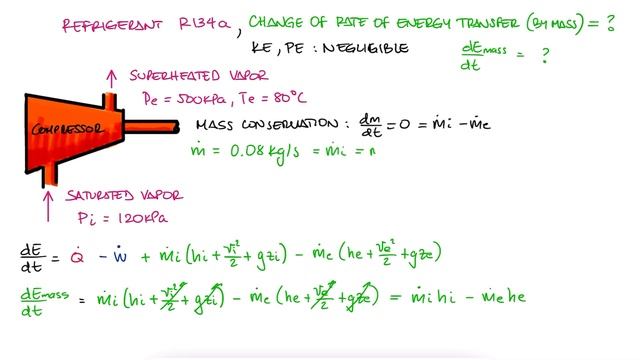 REFRIGERANT R134a, CHANGE OF RATE OF ENERGY TRANSFER (BY MASS) = ?
KE, PE : NEGLIGIBLE
dEmass/dt = ?
SUPERHEATED VAPOR
Pe = 500kPa, Te = 80°C
COMPRESSOR
MASS CONSERVATION : dm/dt = 0 = ṁi - ṁe
ṁ = 0.08 kg/s = ṁi = n
SATURATED VAPOR
Pi = 120kPa
dE/dt = Q̇ - Ẇ + ṁi (hi + vi²/2 + gzi) - ṁe (he + ve²/2 + gze)
dEmass/dt = ṁi (hi + vi²/2 + gzi) - ṁe (he + ve²/2 + gze) = ṁihi - ṁehe